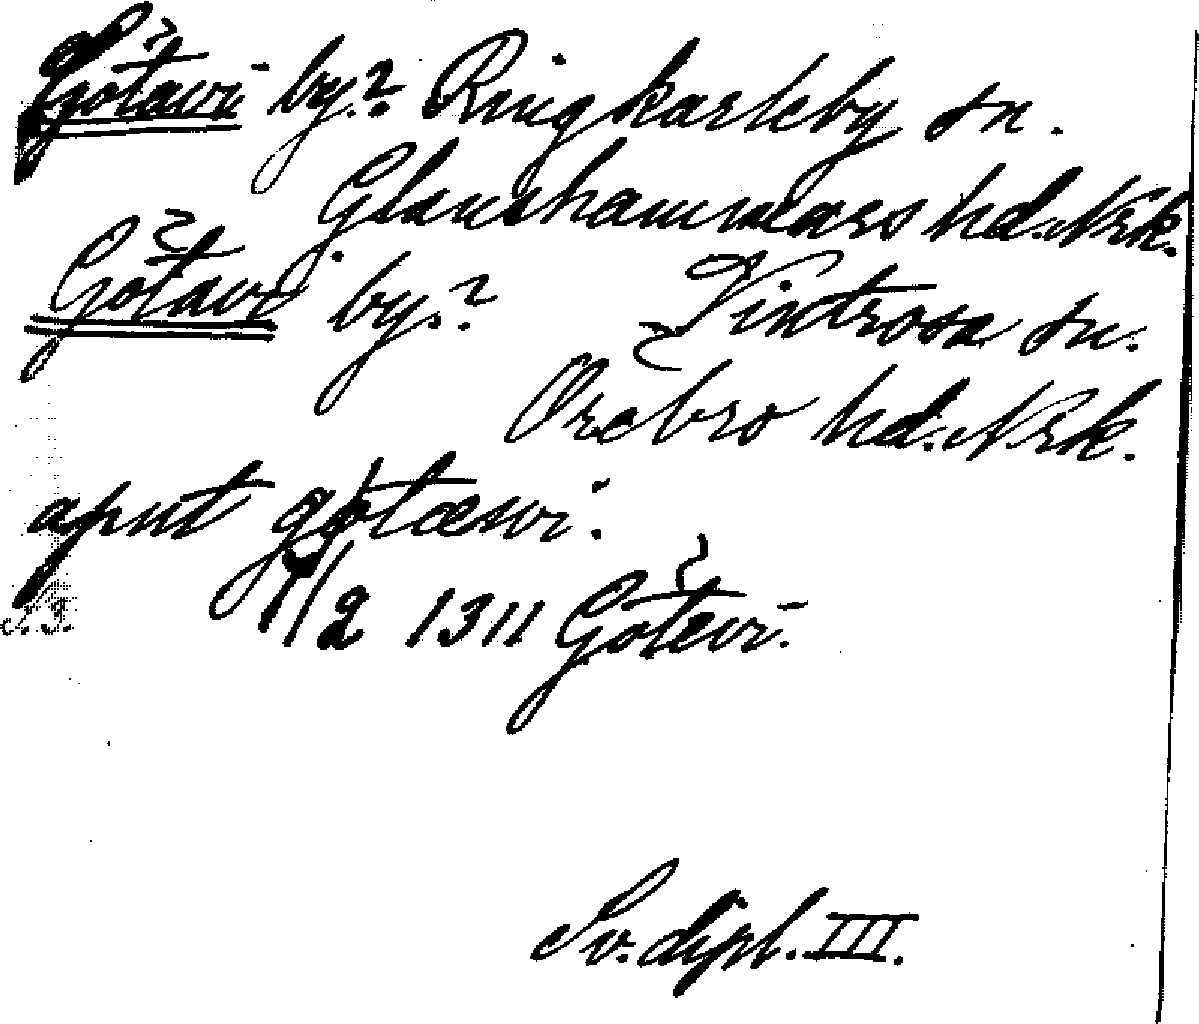 Götavi by? Ringkarleby sn.
Glanshammars hd. Nrk.
Götavi by? Vintrosa sn.
Örebro hd. Nrk.
aput gøtæwi.
/2 1311 Götevi.
Sv. dipl. III.